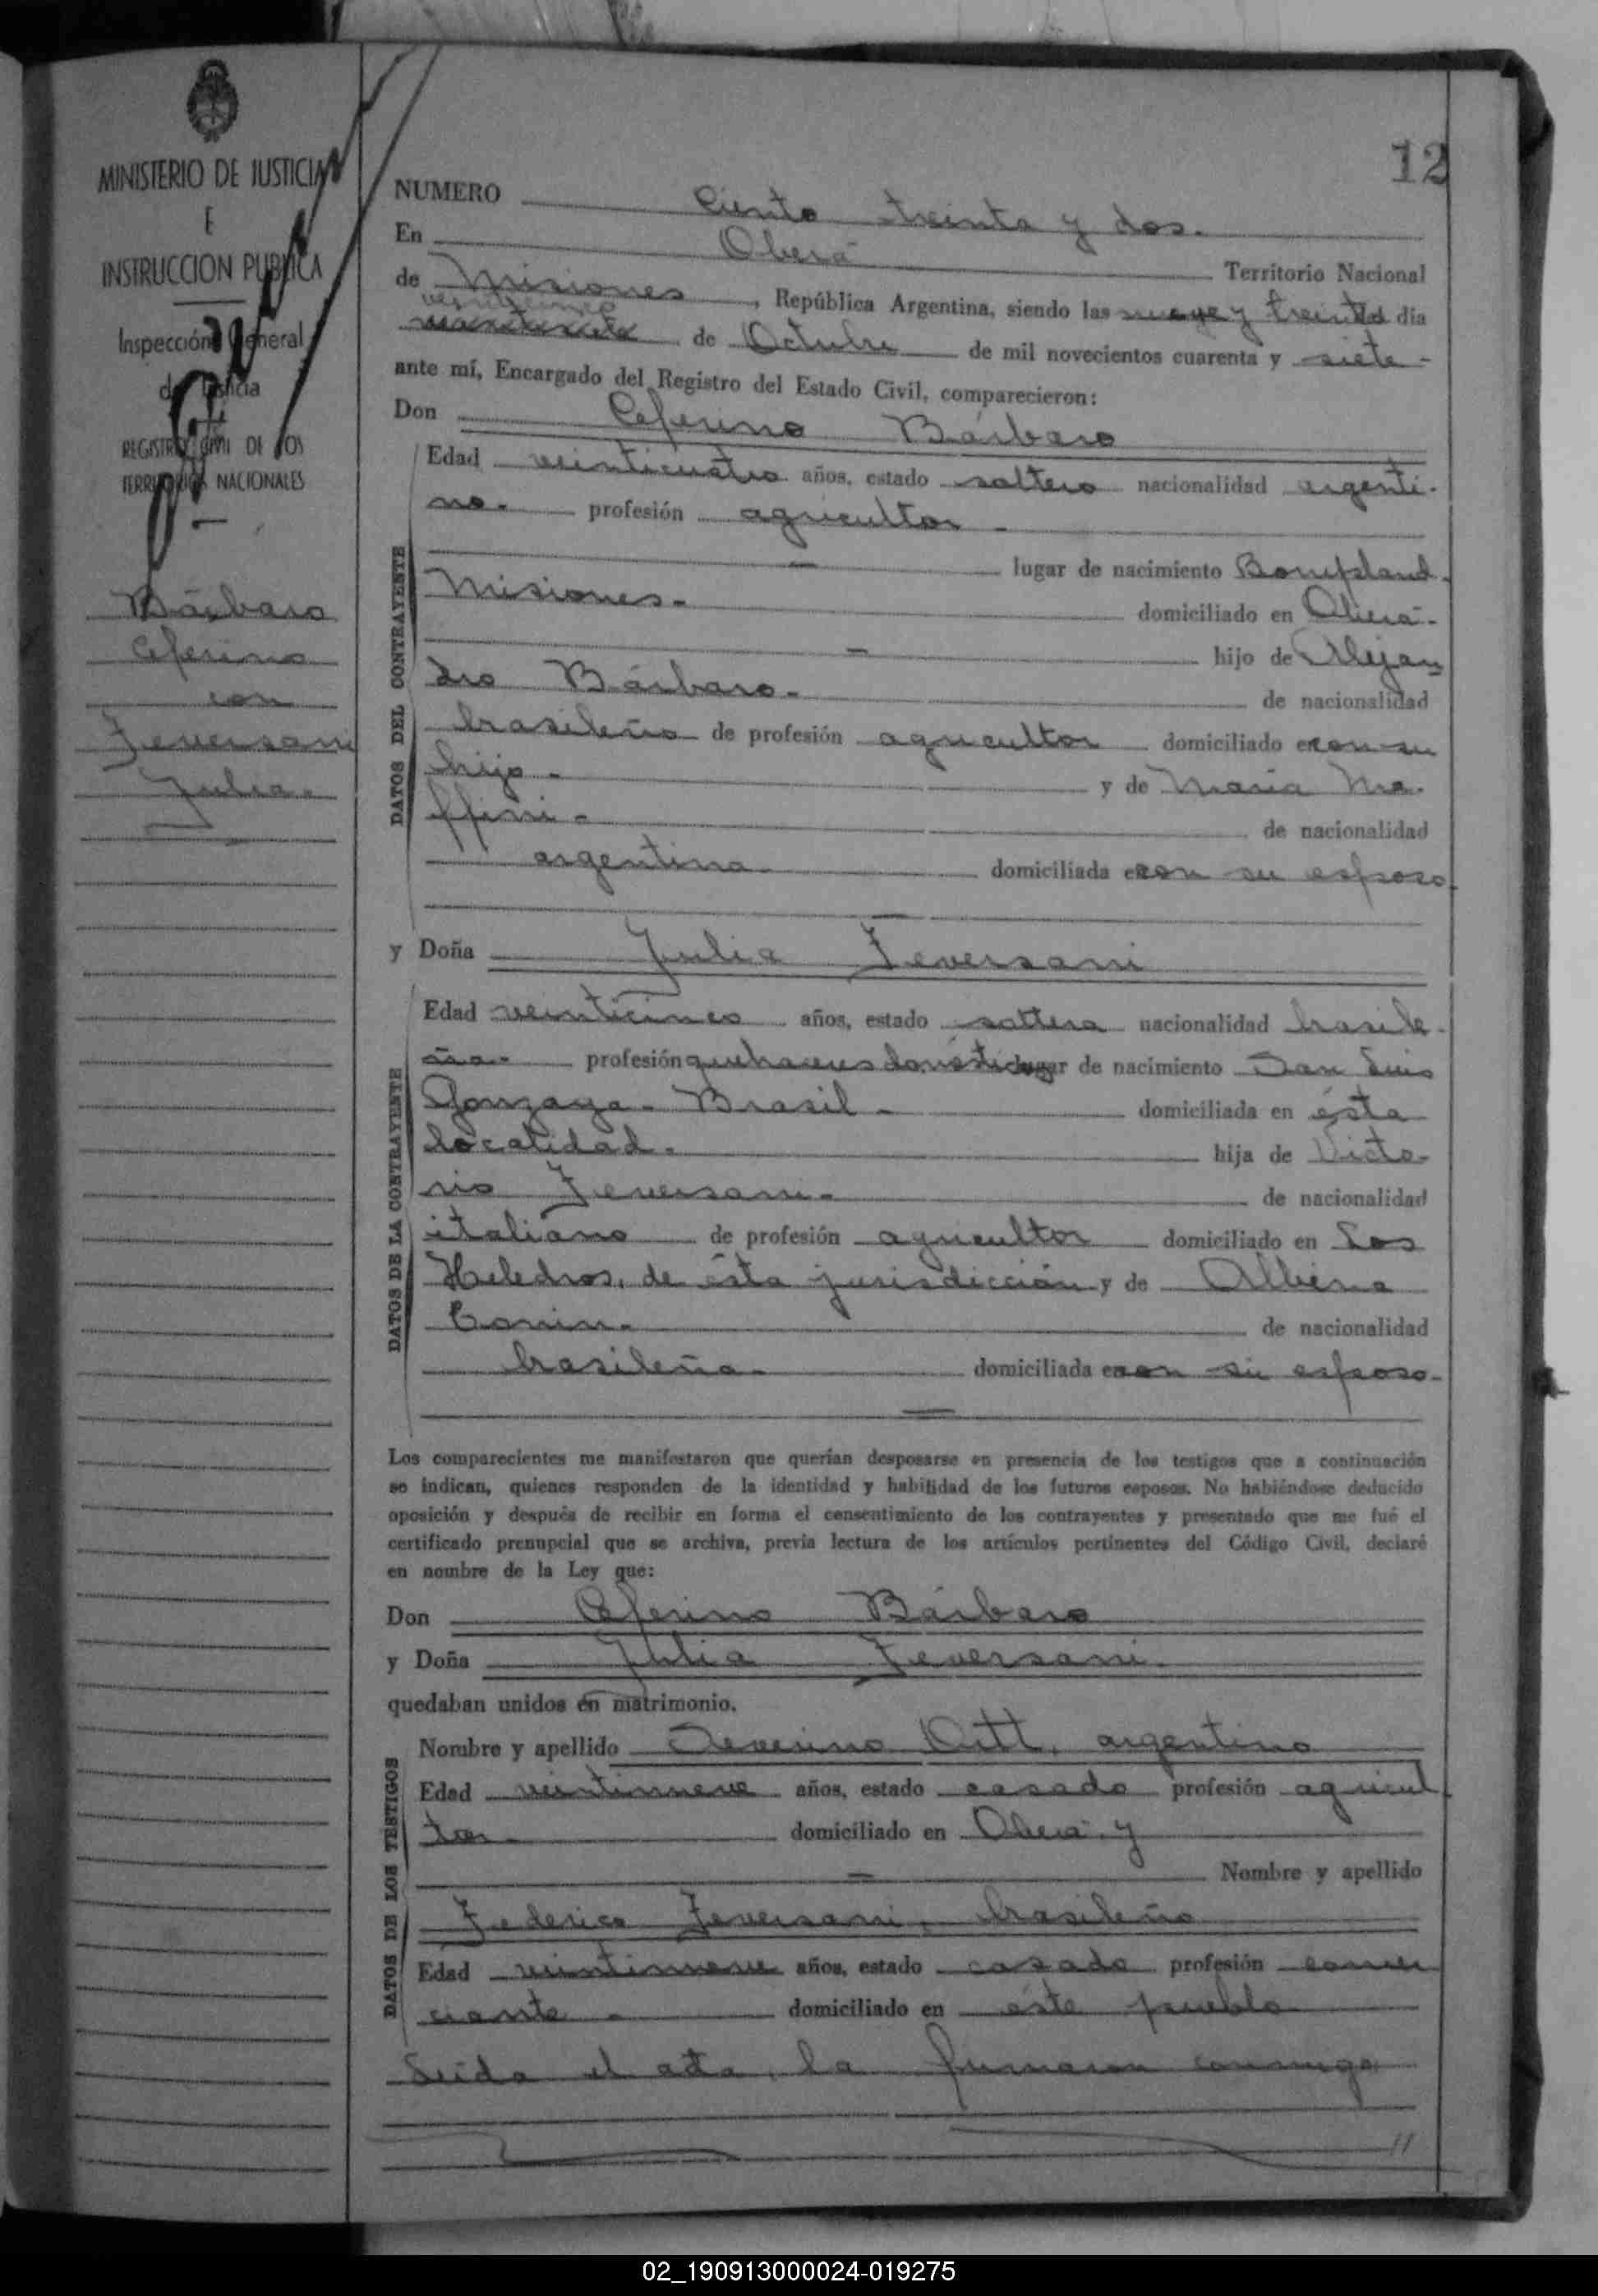 12
MINISTERIO DE JUSTICIA
E
INSTRUCCION PUBLICA
Inspección General
de Justicia
REGISTRO CIVIL DE LOS
TERRITORIOS NACIONALES
Bárbaro
Ceferino
con
Feversani
Julia.
NUMERO Ciento treinta y dos.
En Oberá Territorio Nacional
de Misiones, República Argentina, siendo las nueve y treinta día
veinticinco
de Octubre de mil novecientos cuarenta y siete
ante mí, Encargado del Registro del Estado Civil, comparecieron:
Don Ceferino Bárbaro
DATOS DEL CONTRAYENTE
Edad veinticuatro años, estado soltero nacionalidad argenti-
no. profesión agricultor
lugar de nacimiento Bompland.
Misiones. domiciliado en Oberá.
hijo de Alejan
dro Bárbaro. de nacionalidad
brasileño de profesión agricultor domiciliado con su
hijo. y de María Ma-
ffini. de nacionalidad
argentina domiciliada con su esposo
y Doña Julia Feversani
DATOS DE LA CONTRAYENTE
Edad veinticinco años, estado soltera nacionalidad brasile-
ña. profesión quehaceres domésticos lugar de nacimiento San Luis
Gonzaga. Brasil. domiciliada en ésta
localidad. hija de Victo-
rio Feversani. de nacionalidad
italiano de profesión agricultor domiciliado en Los
Heledros, de ésta jurisdicción y de Albina
de nacionalidad
brasileña. domiciliada con su esposo.
Los comparecientes me manifestaron que querían desposarse en presencia de los testigos que a continuación
se indican, quienes responden de la identidad y habilidad de los futuros esposos. No habiéndose deducido
oposición y después de recibir en forma el consentimiento de los contrayentes y presentado que me fué el
certificado prenupcial que se archiva, previa lectura de los artículos pertinentes del Código Civil, declaré
en nombre de la Ley que:
Don Ceferino Bárbaro
y Doña Julia Feversani.
quedaban unidos en matrimonio.
DATOS DE LOS TESTIGOS
Nombre y apellido Severino Ott, argentino
Edad veintinueve años, estado casado profesión agricul
tor. domiciliado en Oberá. y
Nombre y apellido
Federico Feversani, brasileño
Edad veintinueve años, estado casado profesión comer
ciante. domiciliado en éste pueblo
Leída el acta, la firmaron conmigo
02_190913000024-019275